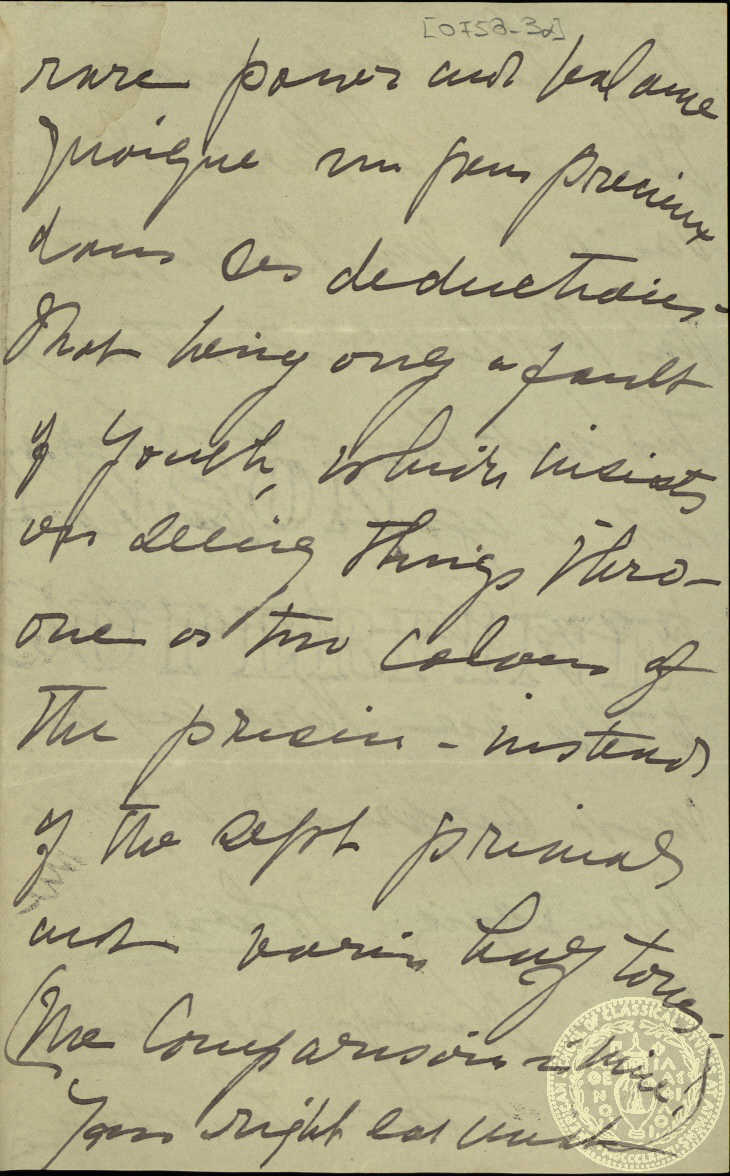 [0758-3d]
rare power and balance
quoique un peu precieux
dans ses deductions -
That being only a fault
of Youth, which insists
on seeing things thro -
one or two colours of
the prism - instead
of the sept primal
and varin hued tones -
(The Comparison is mine.)